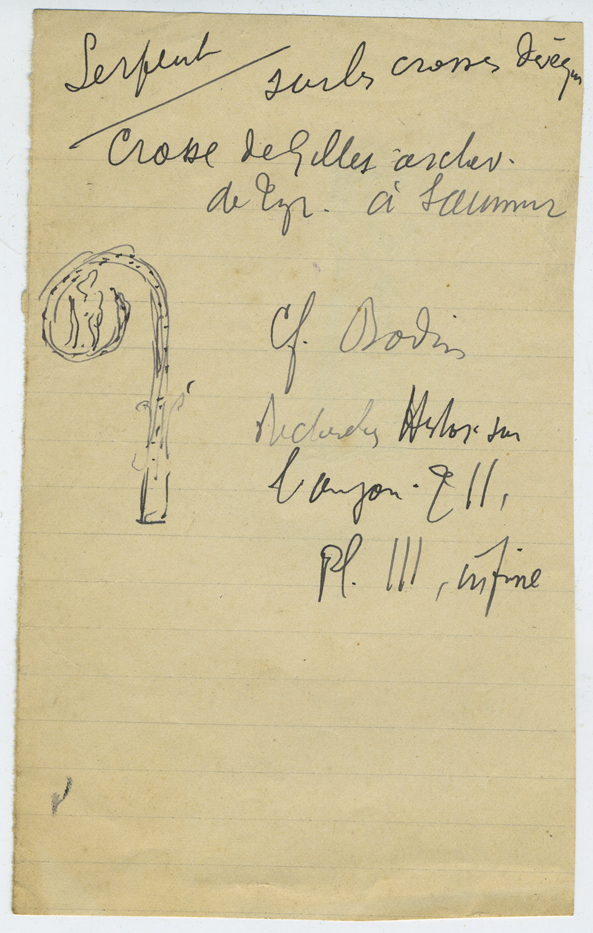 Serpent
sur les crosses d'évêques
Crosse de Gilles archev.
de Tyr. à Saumur
Cf. Bodin
Recherches Histor. sur
l'anjou. T II,
Pl. III, in fine